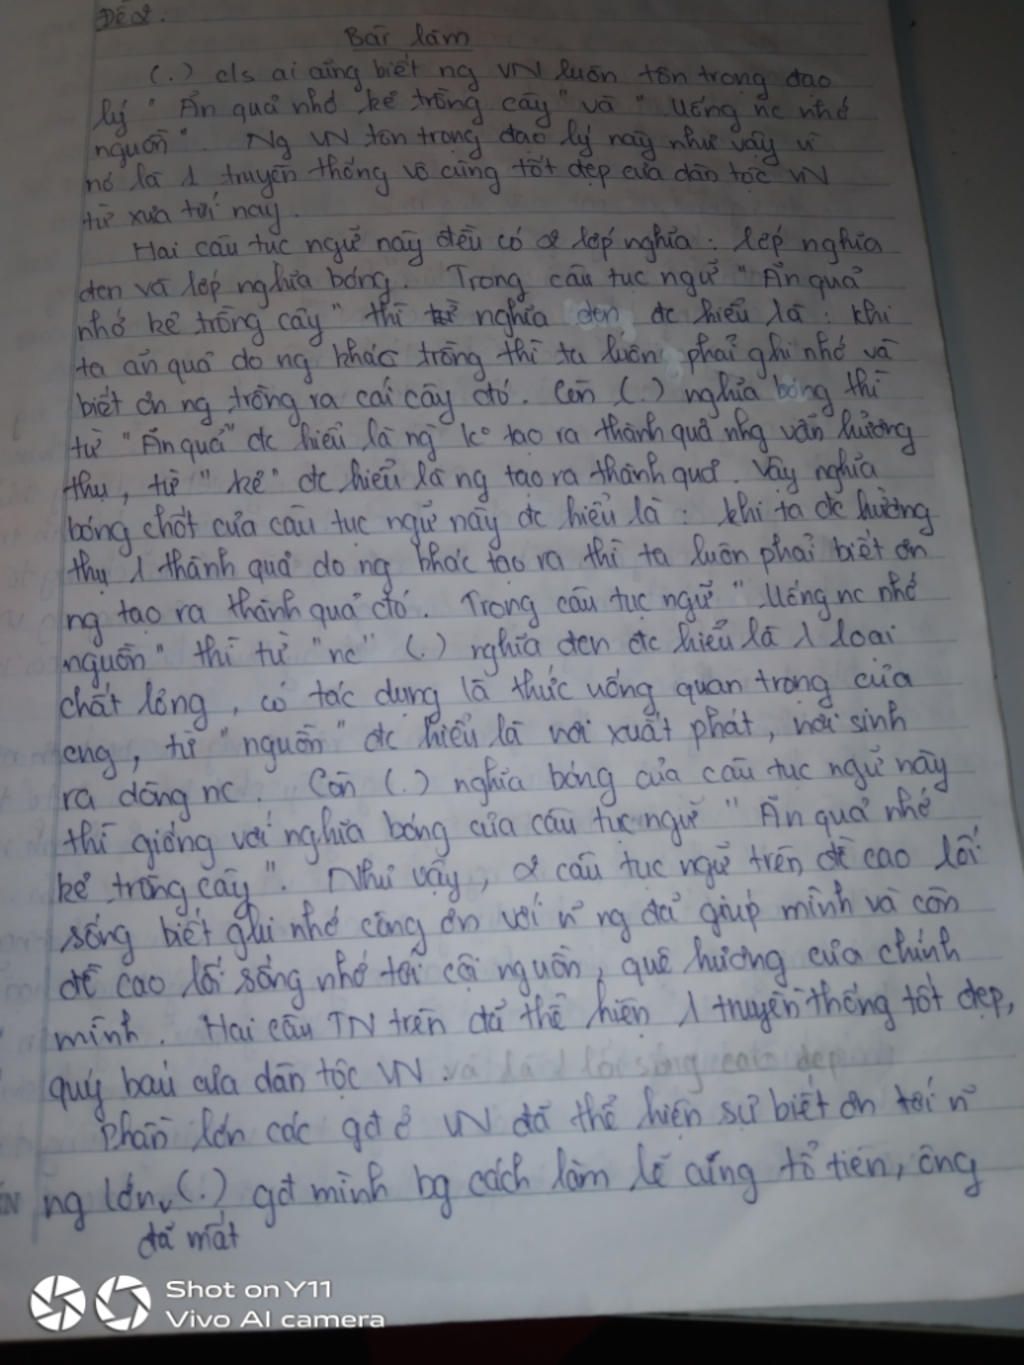 Đề 2.
Bài làm
(.) c/s ai cũng biết ng VN luôn tôn trọng đạo
lý " Ăn quả nhớ kẻ trồng cây " và " Uống nc nhớ
nguồn ". Ng VN tôn trọng đạo lý này như vậy vì
nó là 1 truyền thống vô cùng tốt đẹp của dân tộc VN
từ xưa tới nay.
Hai câu tục ngữ này đều có 2 lớp nghĩa : lớp nghĩa
đen và lớp nghĩa bóng. Trong câu tục ngữ " Ăn quả
nhớ kẻ trồng cây " thì nghĩa đen đc hiểu là : khi
ta ăn quả do ng khác trồng thì ta luôn phải ghi nhớ và
biết ơn ng trồng ra cái cây đó. Còn (.) nghĩa bóng thì
từ " Ăn quả " đc hiểu là ng k° tạo ra thành quả nhg vẫn hưởng
thụ, từ " kẻ " đc hiểu là ng tạo ra thành quả. Vậy nghĩa
bóng chốt của câu tục ngữ này đc hiểu là : khi ta đc hưởng
thụ 1 thành quả do ng khác tạo ra thì ta luôn phải biết ơn
ng tạo ra thành quả đó. Trong câu tục ngữ " Uống nc nhớ
nguồn " thì từ "nc" (.) nghĩa đen đc hiểu là 1 loại
chất lỏng, có tác dụng là thức uống quan trọng của
cng, từ " nguồn " đc hiểu là nơi xuất phát, nơi sinh
ra dòng nc. Còn (.) nghĩa bóng của câu tục ngữ này
thì giống với nghĩa bóng của câu tục ngữ " Ăn quả nhớ
kẻ trồng cây ". Như vậy, 2 câu tục ngữ trên đề cao lối
sống biết ghi nhớ công ơn với n~ ng đã giúp mình và còn
đề cao lối sống nhớ tới cội nguồn, quê hương của chính
mình. Hai câu TN trên đã thể hiện 1 truyền thống tốt đẹp,
quý báu của dân tộc VN. và là 1 lối sống cao đẹp
Phần lớn các gđ ở VN đã thể hiện sự biết ơn tới n~
ng lớn v (.) gđ mình bg cách làm lễ cúng tổ tiên, ông
đã mất
Shot on Y11
Vivo AI camera